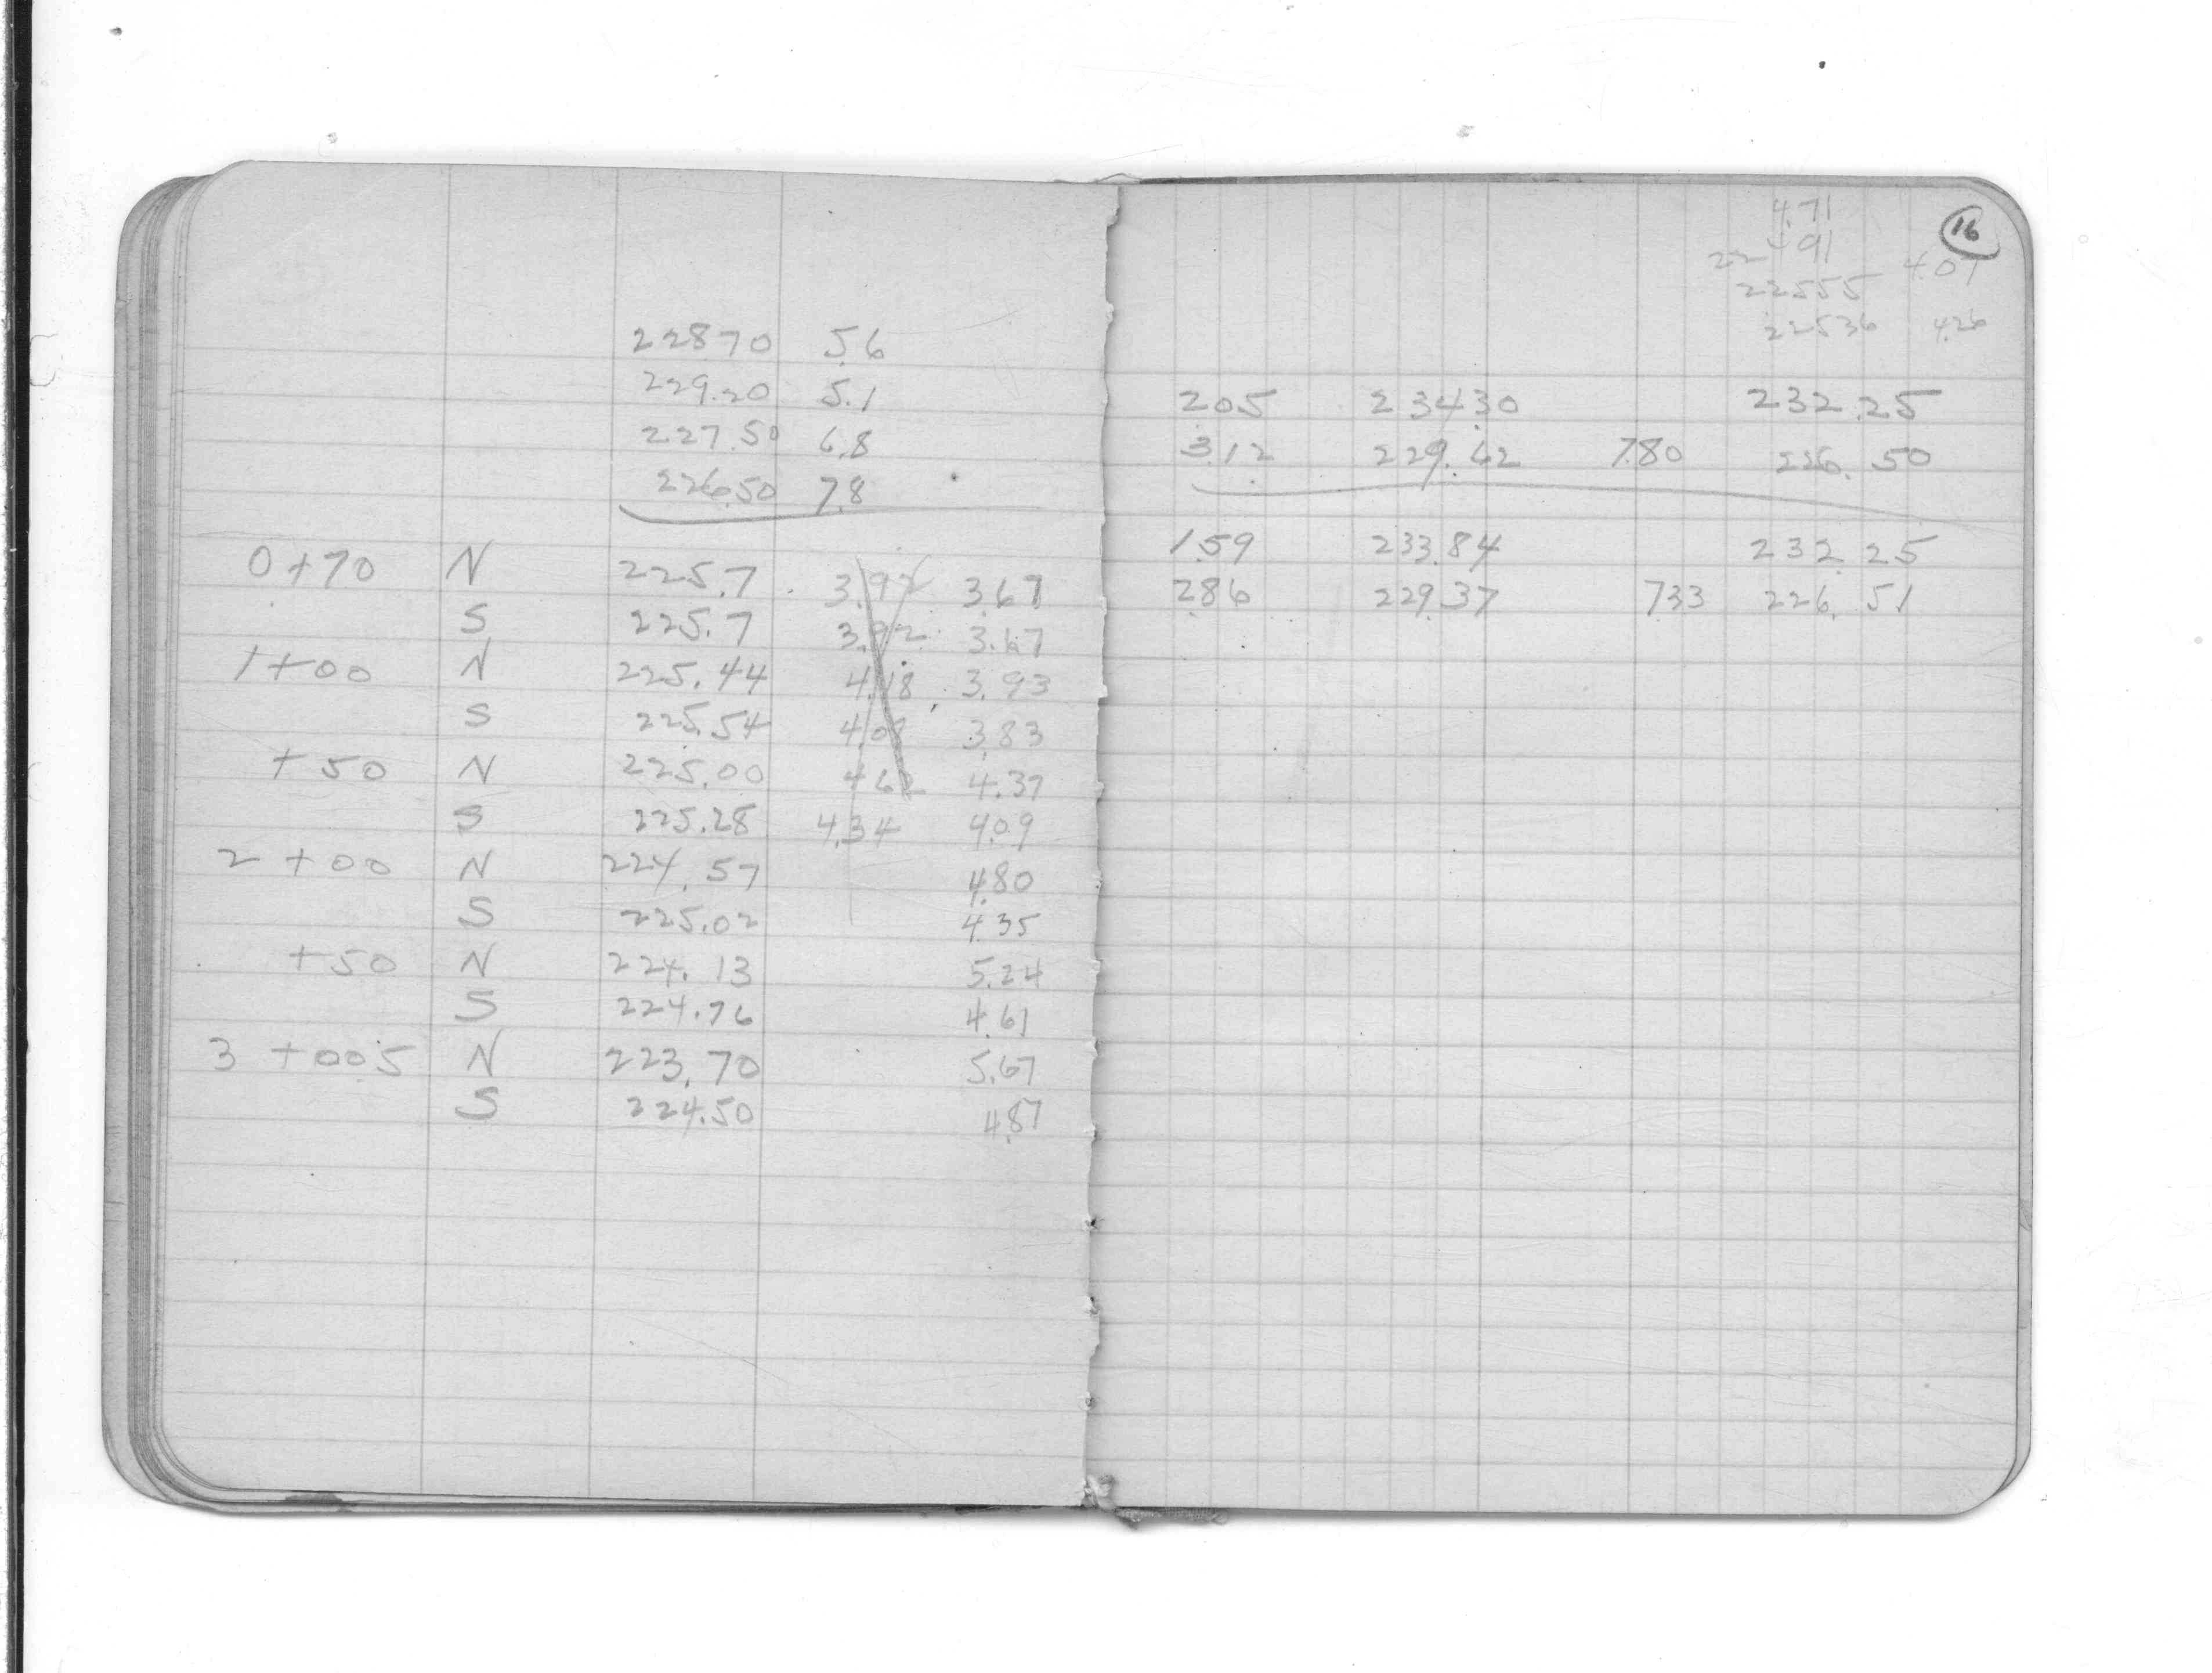 22870 5.6
229.20 5.1
227.50 6.8
226.50 7.8
0+70 N 225.7 3.92 3.67
S 225.7 3.92 3.67
1+00 N 225.44 4.18 3.93
S 225.54 4.08 3.83
+50 N 225.00 4.62 4.37
S 225.28 4.34 4.09
2+00 N 224.57 4.80
S 225.02 4.35
+50 N 224.13 5.24
S 224.76 4.61
3+005 N 223.70 5.67
S 224.50 4.87
16
4.71
22491
22555 4.07
22536 4.26
2.05 234.30 232.25
3.12 229.62 7.80 226.50
1.59 233.84 232.25
2.86 229.37 7.33 226.51